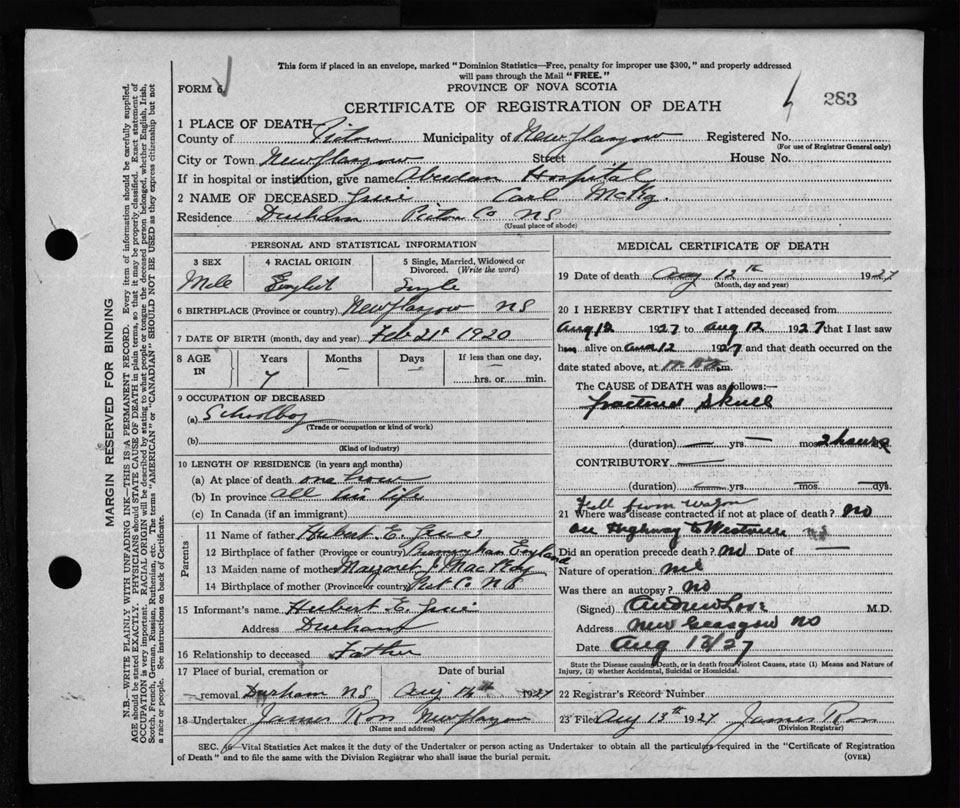 This form if placed in an envelope, marked "Dominion Statistics—Free, penalty for improper use $300," and properly addressed
will pass through the Mail "FREE."
FORM 6
PROVINCE OF NOVA SCOTIA
283
CERTIFICATE OF REGISTRATION OF DEATH
1 PLACE OF DEATH—
County of Pictou Municipality of New Glasgow Registered No.
(For use of Registrar General only)
City or Town New Glasgow Street House No.
If in hospital or institution, give name Aberdeen Hospital
2 NAME OF DECEASED Carl McKy.
Residence Durham Pictou Co NS
(Usual place of abode)
PERSONAL AND STATISTICAL INFORMATION
3 SEX 4 RACIAL ORIGIN 5 Single, Married, Widowed or
Divorced. (Write the word)
Male English Single
6 BIRTHPLACE (Province or country) New Glasgow NS
7 DATE OF BIRTH (month, day and year) Feb 21st 1920
8 AGE IN Years Months Days If less than one day,
7 hrs. or min.
9 OCCUPATION OF DECEASED
(a) Schoolboy
(Trade or occupation or kind of work)
(b)
(Kind of industry)
10 LENGTH OF RESIDENCE (in years and months)
(a) At place of death one hour
(b) In province all his life
(c) In Canada (if an immigrant)
Parents
11 Name of father Hubert E.
12 Birthplace of father (Province or country) Birmingham England
13 Maiden name of mother Margaret J. MacKay
14 Birthplace of mother (Province or country) Pict. Co. N S
15 Informant's name Hubert E.
Address Durham
16 Relationship to deceased Father
17 Place of burial, cremation or Date of burial
removal Durham NS Aug 14th 1927
18 Undertaker James Ross New Glasgow
(Name and address)
MEDICAL CERTIFICATE OF DEATH
19 Date of death Aug 12th 1927
(Month, day and year)
20 I HEREBY CERTIFY that I attended deceased from
Aug 12 1927 to Aug 12 1927 that I last saw
him alive on Aug 12 1927 and that death occurred on the
date stated above, at m.
The CAUSE of DEATH was as follows:—
fractured skull
(duration) — yrs — mos 2 hours
CONTRIBUTORY —
(duration) — yrs. — mos — dys.
Fell from wagon
21 Where was disease contracted if not at place of death? no
on Highway to Westville NS
Did an operation precede death? no Date of —
Nature of operation
Was there an autopsy? no
(Signed) Andrew Love M.D.
Address New Glasgow NS
Date Aug 12/27
State the Disease causing Death, or in death from Violent Causes, state (1) Means and Nature of
Injury, (2) whether Accidental, Suicidal or Homicidal.
22 Registrar's Record Number
23 Filed Aug 13th 1927 James Ross
(Division Registrar)
SEC. —Vital Statistics Act makes it the duty of the Undertaker or person acting as Undertaker to obtain all the particulars required in the "Certificate of Registration
of Death" and to file the same with the Division Registrar who shall issue the burial permit.
(OVER)
MARGIN RESERVED FOR BINDING
N.B.—WRITE PLAINLY WITH UNFADING INK—THIS IS A PERMANENT RECORD. Every item of information should be carefully supplied.
AGE should be stated EXACTLY. PHYSICIANS should STATE CAUSE OF DEATH in plain terms, so that it may be properly classified. Exact statement of
OCCUPATION is very important. RACIAL ORIGIN will be described by stating to what people or tongue the deceased person belonged, whether English, Irish,
Scotch, French, German, Russian, Ruthenian, etc. The terms "AMERICAN" or "CANADIAN" SHOULD NOT BE USED as they express citizenship but not
a race or people. See instructions on back of Certificate.